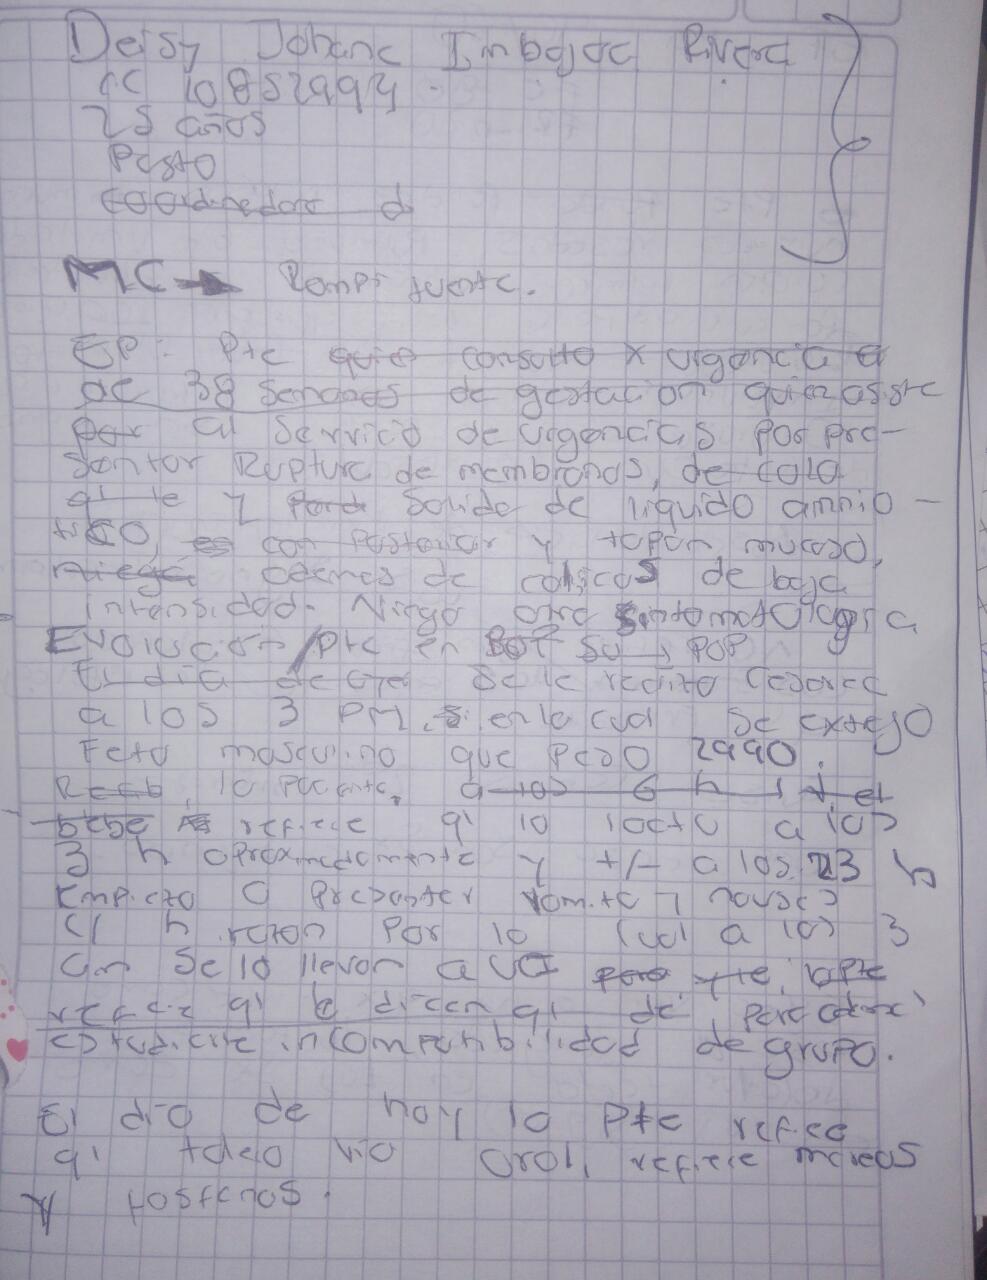 Deisy Johana Imbajoa Rivera
CC 10852994
25 años
Pasto
coordinadora d
MC → Rompi fuente.
EP: Pte quie consulto x urgencia a
de 38 semanas de gestación quien asiste
por al servicio de urgencias por pre-
sentar Ruptura de membranas, de cola
q' le y salida de liquido amnio-
tico, es con posterior y tapon mucoso,
niega ademas de colicos de baja
intensidad. Niega otra sintomatologia
Evolucion / pte en POP
El dia de ayer se le realizo cesarea
a las 3 PM, en la cual se extrajo
Feto masculino que peso 2990.
la paciente, a las 6 h el
bebe refiere q' lo lacto a las
3 h aproximadamente y +/- a las 23
empieza a presentar vomito y nausea
c/ h razon por lo cual a las 3
am se lo llevan a la pte
refiere q' le dicen q' de para
estudiarle incompatibilidad de grupo.
El dia de hoy la pte refiere
q' tolero via oral, refiere mareos
y